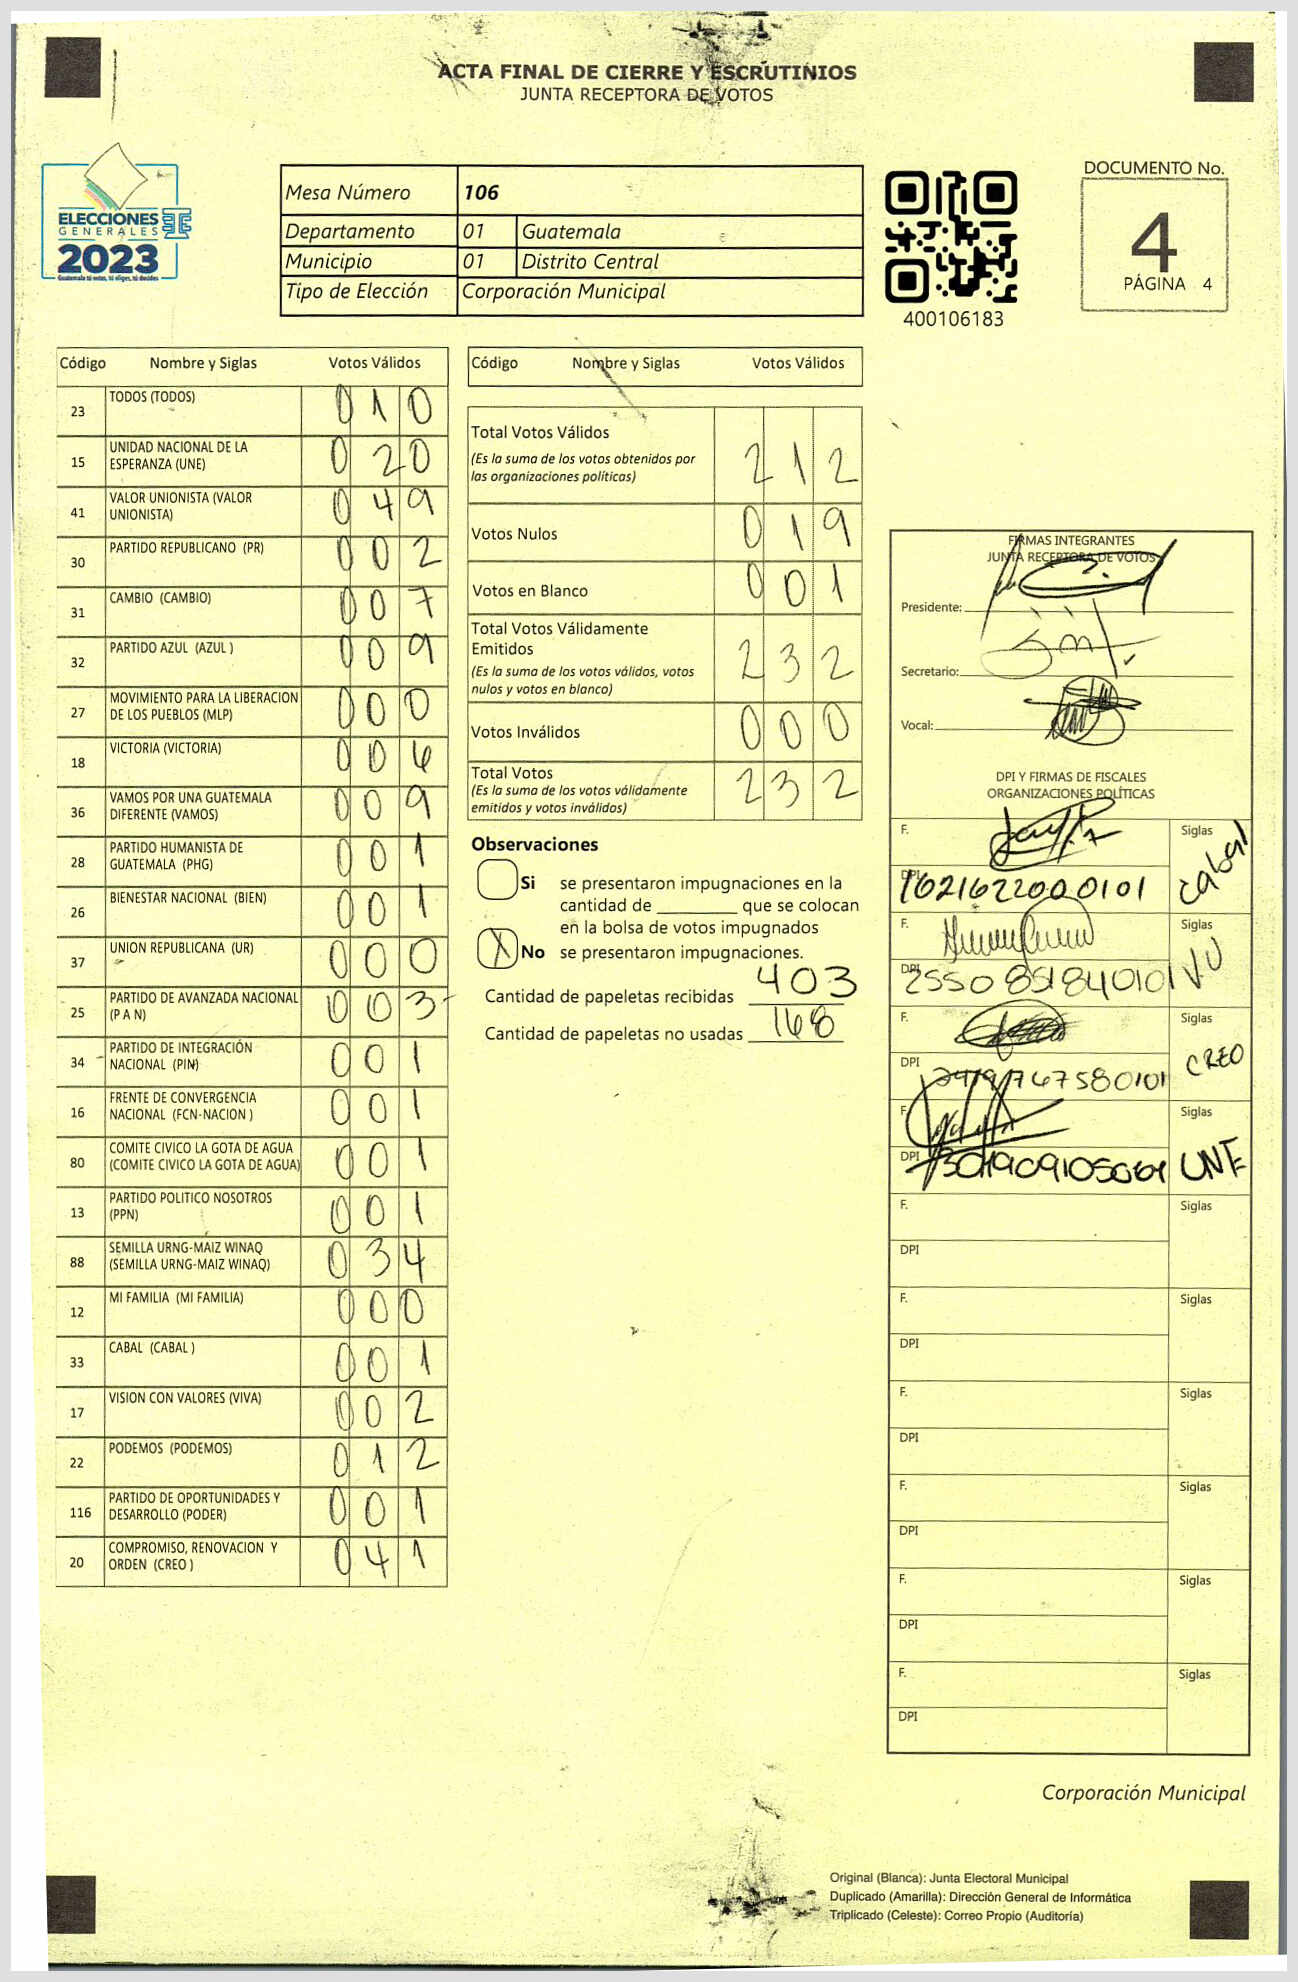 ACTA FINAL DE CIERRE Y ESCRUTINIOS
JUNTA RECEPTORA DE VOTOS
ELECCIONES
GENERALES
2023
Guatemala tú votas, tú eliges, tú decides
Mesa Número 106
Departamento 01 Guatemala
Municipio 01 Distrito Central
Tipo de Elección Corporación Municipal
400106183
DOCUMENTO No.
4
PÁGINA 4
Código Nombre y Siglas Votos Válidos
23 TODOS (TODOS) 0 1 0
15 UNIDAD NACIONAL DE LA ESPERANZA (UNE) 0 2 0
41 VALOR UNIONISTA (VALOR UNIONISTA) 0 4 9
30 PARTIDO REPUBLICANO (PR) 0 0 2
31 CAMBIO (CAMBIO) 0 0 7
32 PARTIDO AZUL (AZUL ) 0 0 9
27 MOVIMIENTO PARA LA LIBERACION DE LOS PUEBLOS (MLP) 0 0 0
18 VICTORIA (VICTORIA) 0 0 6
36 VAMOS POR UNA GUATEMALA DIFERENTE (VAMOS) 0 0 9
28 PARTIDO HUMANISTA DE GUATEMALA (PHG) 0 0 1
26 BIENESTAR NACIONAL (BIEN) 0 0 1
37 UNION REPUBLICANA (UR) 0 0 0
25 PARTIDO DE AVANZADA NACIONAL (P A N) 0 0 3
34 PARTIDO DE INTEGRACIÓN NACIONAL (PIN) 0 0 1
16 FRENTE DE CONVERGENCIA NACIONAL (FCN-NACION ) 0 0 1
80 COMITE CIVICO LA GOTA DE AGUA (COMITE CIVICO LA GOTA DE AGUA) 0 0 1
13 PARTIDO POLITICO NOSOTROS (PPN) 0 0 1
88 SEMILLA URNG-MAIZ WINAQ (SEMILLA URNG-MAIZ WINAQ) 0 3 4
12 MI FAMILIA (MI FAMILIA) 0 0 0
33 CABAL (CABAL ) 0 0 1
17 VISION CON VALORES (VIVA) 0 0 2
22 PODEMOS (PODEMOS) 0 1 2
116 PARTIDO DE OPORTUNIDADES Y DESARROLLO (PODER) 0 0 1
20 COMPROMISO, RENOVACION Y ORDEN (CREO ) 0 4 1
Código Nombre y Siglas Votos Válidos
Total Votos Válidos 2 1 2
(Es la suma de los votos obtenidos por
las organizaciones políticas)
Votos Nulos 0 1 9
Votos en Blanco 0 0 1
Total Votos Válidamente
Emitidos 2 3 2
(Es la suma de los votos válidos, votos
nulos y votos en blanco)
Votos Inválidos 0 0 0
Total Votos 2 3 2
(Es la suma de los votos válidamente
emitidos y votos inválidos)
Observaciones
Si se presentaron impugnaciones en la
cantidad de ________ que se colocan
en la bolsa de votos impugnados
X No se presentaron impugnaciones.
Cantidad de papeletas recibidas 403
Cantidad de papeletas no usadas 168
FIRMAS INTEGRANTES
JUNTA RECEPTORA DE VOTOS
Presidente:
Secretario:
Vocal:
DPI Y FIRMAS DE FISCALES
ORGANIZACIONES POLÍTICAS
F. Siglas
DPI 1621622000101 Cabal
F. Siglas
DPI 2550851840101 VU
F. Siglas
DPI CREO
F. Siglas
DPI UNE
F. Siglas
DPI
F. Siglas
DPI
F. Siglas
DPI
F. Siglas
DPI
F. Siglas
DPI
F. Siglas
DPI
Corporación Municipal
Original (Blanca): Junta Electoral Municipal
Duplicado (Amarilla): Dirección General de Informática
Triplicado (Celeste): Correo Propio (Auditoría)